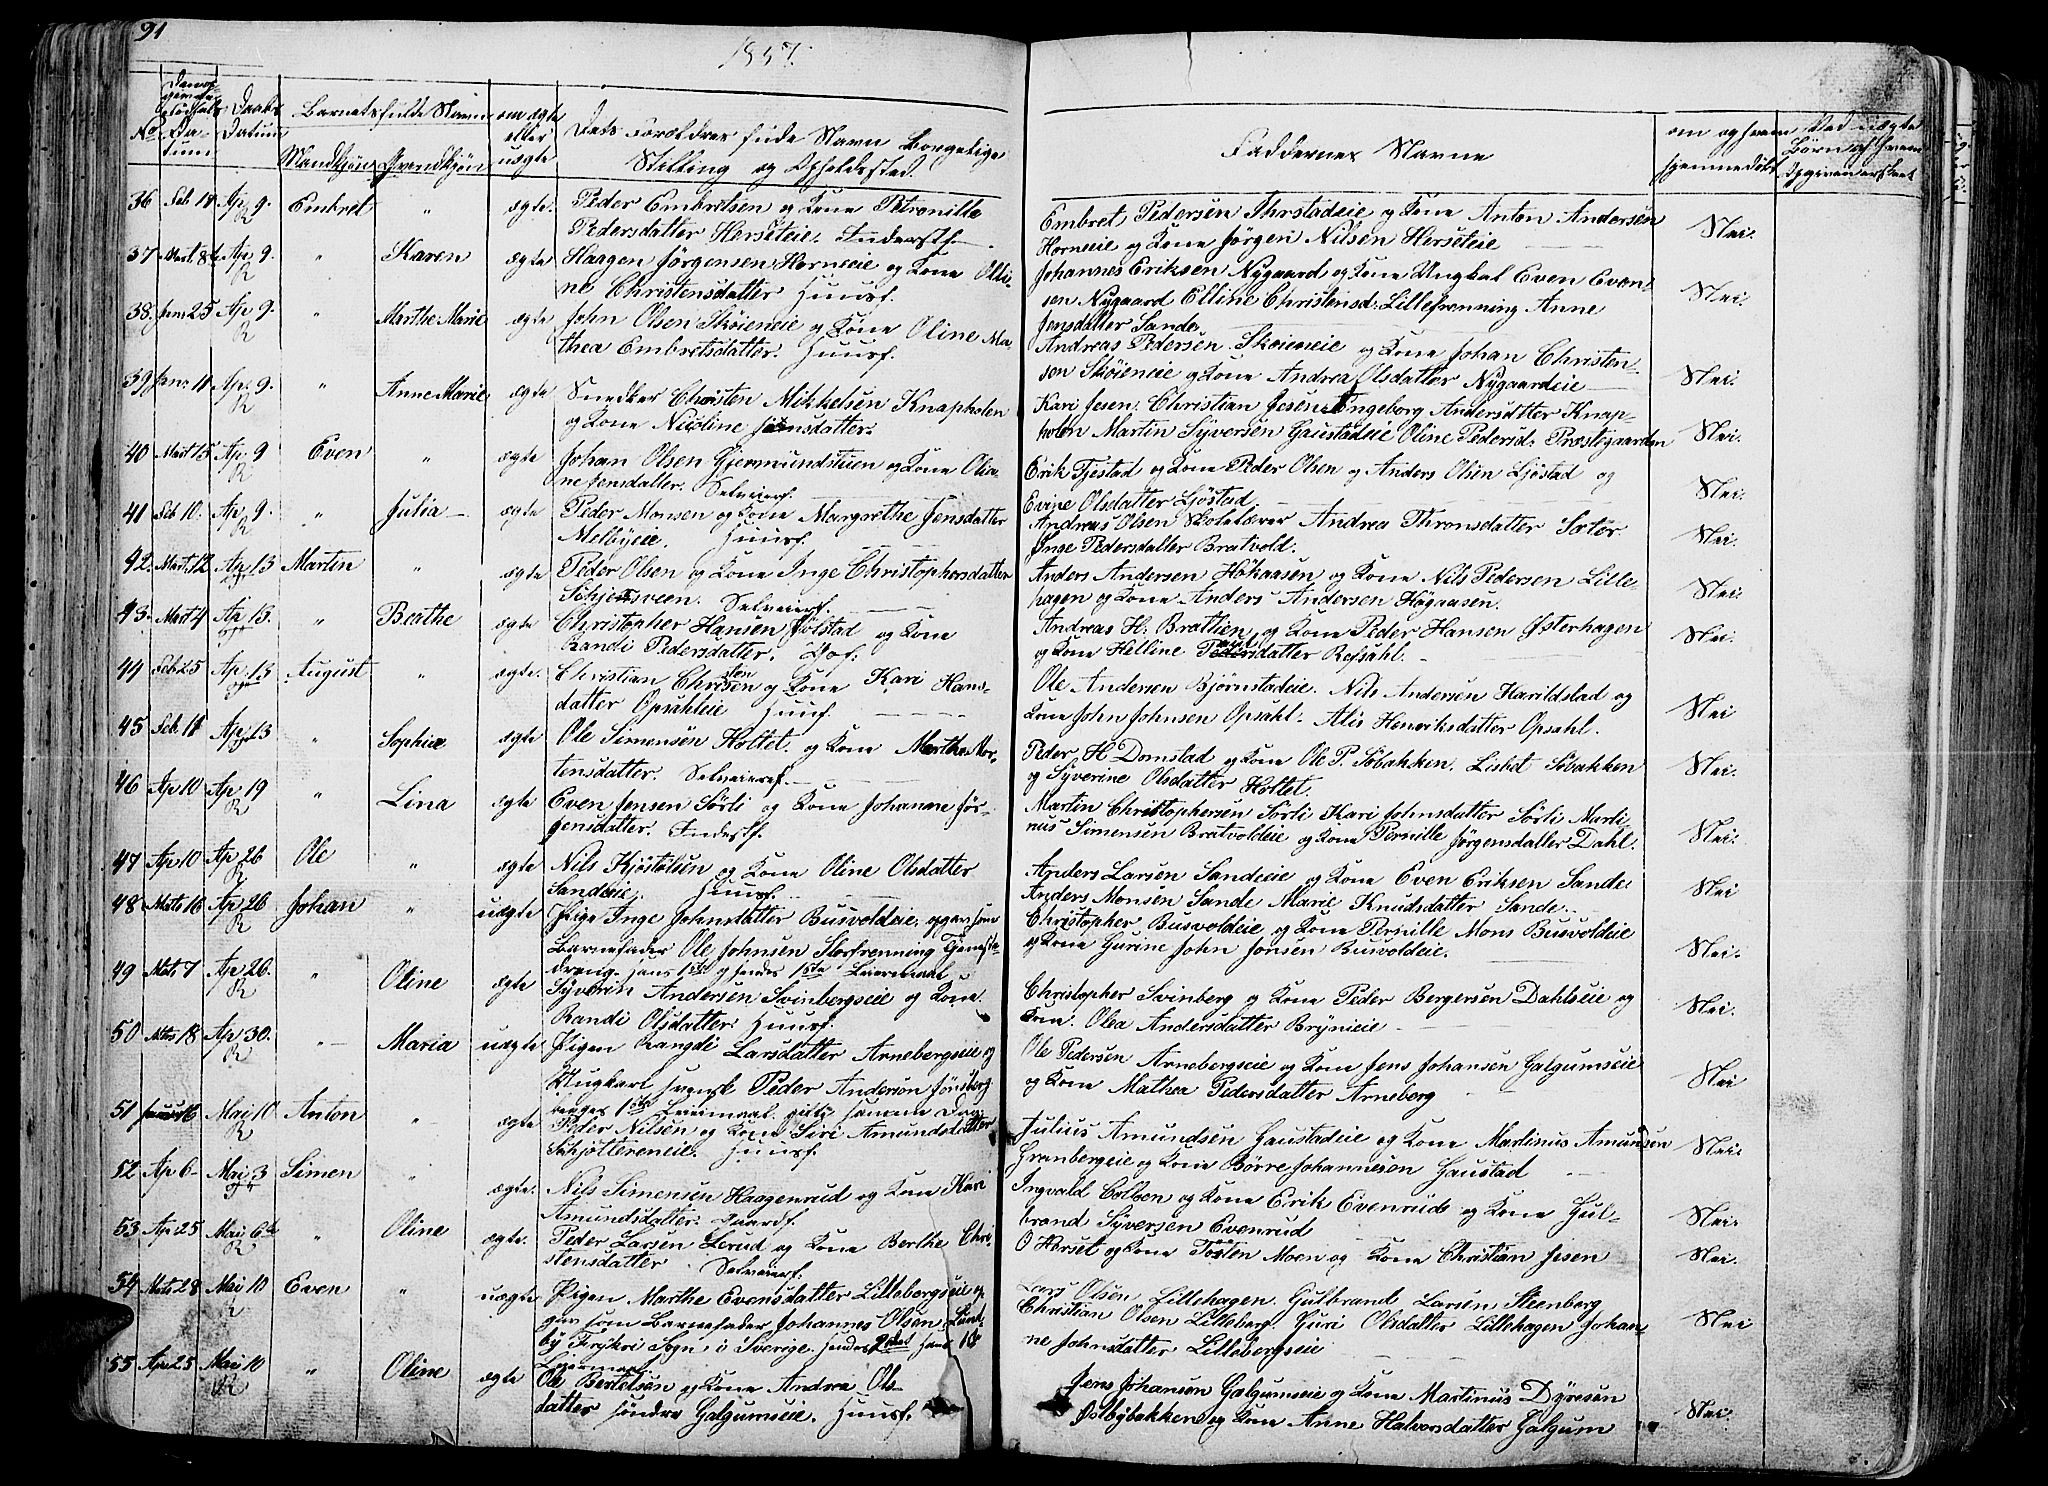 91
1857.
No
Datum
Daabs Datum
Barnets fulde Navn
Mandkjøn Qvendkjøn
om ægte eller uægte
Dets Forældres fulde Navn Borgelige
Stilling og Opholdssted.
Faddernes Navne
om og hvem hjemmedøbt
Ved uægte Børn af hvem Opgiven er skeet
36 Feb 18 Ap 9. R Embret " ægte. Peder Embretsen og Kone Petronille
Pedersdatter Herseteie. Inderstf.
Embret Pedersen Thrstadeie og Kone Anton Andersen
Horneeie og Kone Jørgen Nilsen Herseteie
Nei.
37 Mart. 8d Ap 9. R " Karen ægte Haagen Jørgensen Horneeie og Kone Olli-
ne Christensdatter Huusf.
Johannes Eriksen Nygaard og Kone Ungkal Even Even-
sen Nygaard Elline Christensd. Lillefrenning Anne
Jensdatter Sande
Nei.
38. Jan 25 Ap 9. R " Marthe Marie ægte John Olsen Skøieneie og Kone Oline Ma-
thea Embretsdatter. Huusf.
Andreas Pedersen Skøieneie og Kone Johan Christen-
sen Skøieneie og Kone Andrea Olsdatter Nygaardeie
Nei.
39 Jan 11 Ap. 9. R " Anne Marie ægte Snedker Christen Mikkelsen Knapholen
og Kone Nicoline Jensdatter.
Kari Jesen. Christian Jesen. Ingeborg Andersdtter Knap-
holen Martin Syversen Gaustadeie Oline Pedersd. Præstegaarden
Nei.
40 Mart 15 Ap 9 R Even " ægte Johan Olsen Gjermundstuen og Kone Olea-
ne Jensdatter. Selveierf.
Erik Tjøstad og Kone Peder Olsen og Anders Olsen Ljøstad og
Evine Olsdatter Ljøstad
Nei.
41 Feb 10. Ap 9. R " Julia ægte Peder Monsen og Kone Margrethe Jensdatter
Melbyeie. Huusf.
Andreas Olsen Skolelærer Andrea Thronsdatter Sæter
Inge Pedersdatter Bratvold.
Nei.
42. Mart. 12 Ap 13 Martin " ægte Peder Olsen og Kone Inge Christophersdatter
Schjetsveen. Selveierf.
Anders Andersen Høkaasen og Kone Nils Pedersen Lille-
hagen og Kone Anders Andersen Høgaasen.
Nei.
43. Mart 4 Ap 13. " Berthe ægte Christopher Hansen Jølstad og Kone
Randi Pedersdatter.
Andreas H. Bratlien og Kone Peder Hansen Østerhagen
og Kone Helline Pedersdatter Refsahl.
Nei.
44 Feb 25 Ap. 13 August " ægte. Christian Christensen og Kone Kari Hans-
datter Opsahleie Huusf.
Ole Andersen Bjørnstadeie. Nils Andersen Harildstad og
Kone John Johnsen Opsahl. Alis Henriksdatter Opsahl.
Nei
45 Feb 11 Ap 13 " Sophie ægte Ole Simensen Holtet. og Kone Marthe Mor-
tensdatter. Selveierf.
Peder H Domstad og Kone Ole P. Søbakken. Lisbet Søbakken
og Syverine Olsdatter Holtet.
Nei.
46 Ap 10 Ap 19 R " Lina ægte Even Jensen Sørli og Kone Johanne Jør-
gensdatter. Inderstf.
Martin Christophersen Sørli Kari Johnsdatter Sørli Marti-
nus Simensen Bratvoldeie og Kone Pernille Jørgensdatter Dahl.
Nei.
47 Ap 10 Ap 26 R Ole " ægte Nils Kjøstelsen og Kone Oline Olsdatter
Sandeeie, Huusf.
Anders Larsen Sandeeie og Kone Even Eriksen Sande
Anders Monsen Sande Marie Knudsdatter Sande.
Nei
48 Mats 16 Ap 26 R Johan " uægte Pige Inge Johnsdatter Busvoldeie. opgav som
Barnefader Ole Johnsen Storfrenning Tjeneste-
dreng. hans 1ste og hendes 1ste Leiermaal
Christopher Busvoldeie og Kone Pernille Mons Busvoldeie
og Kone Gurine John Jonsen Busvoldeie.
Nei.
49 Mats 7 Ap 26. R " Oline ægte Syverin Andersen Svinbergseie og Kone
Randi Olsdatter. Huusf.
Christopher Svinberg og Kone Peder Bergersen Dahlseie og
Kone. Olea Andersdatter Brynieie
Nei.
50 Mts 18 Ap 30. R " Maria uægte Pigen Rangdi Larsdatter Arnebergseie og
Ungkarl svensk Peder Anderson Jønsberg
begges 1ste Leiermaal. gifte samme Dag
Ole Pedersen Arnebergseie og Kone Jens Johansen Galgumseie
og Kone Mathea Pedersdatter Arneberg
Nei
51 Mai 10 R Anton " ægte Peder Nilsen og Kone Siri Amundsdatter
Schjøttereneie. Huusf.
Julius Amundsen Gaustadeie og Kone Martinus Amundsen
Granbergeie og Kone Børre Johannesen Gaustad
Nei.
52 Ap 6 Mai 3 Simen " ægte. Nils Simensen Haagenrud og Kone Kari
Amundsdatter. Gaardf.
Ingvald Colben og Kone Erik Evenrud og Kone Gul-
brand Syversen Evenrud
Nei.
53 Ap 25 Mai 6te R " Oline ægte. Peder Larsen Lerud og Kone Berthe Chri-
stensdatter. Selveierf.
O Herset og Kone Tosten Moen og Kone Christian Jesen
Nei.
54 Mats 28 Mai 10 R Even " uægte Pigen Marthe Evensdatter Lillebergseie op-
gav som Barnefader Johannes Olsen Lund-
by Frykri Sogn i Sverige. hendes 2det hans 1ste
Leiermaal.
Lars Olsen Lillehagen. Gulbrand Larsen Steenberg
Christian Olsen Lilleberg. Guri Olsdatter Lillehagen Johan-
ne Johnsdatter Lillebergseie
Nei
55 Apr 25 Mai 10 R " Oline ægte Ole Bertelsen og Kone Andrea Ols-
datter søndre Galgumseie. Huusf.
Jens Johansen Galgumseie og Kone Martinus Dyresen
Østbybakken og Kone Anne Halvorsdatter Galgum
Nei.